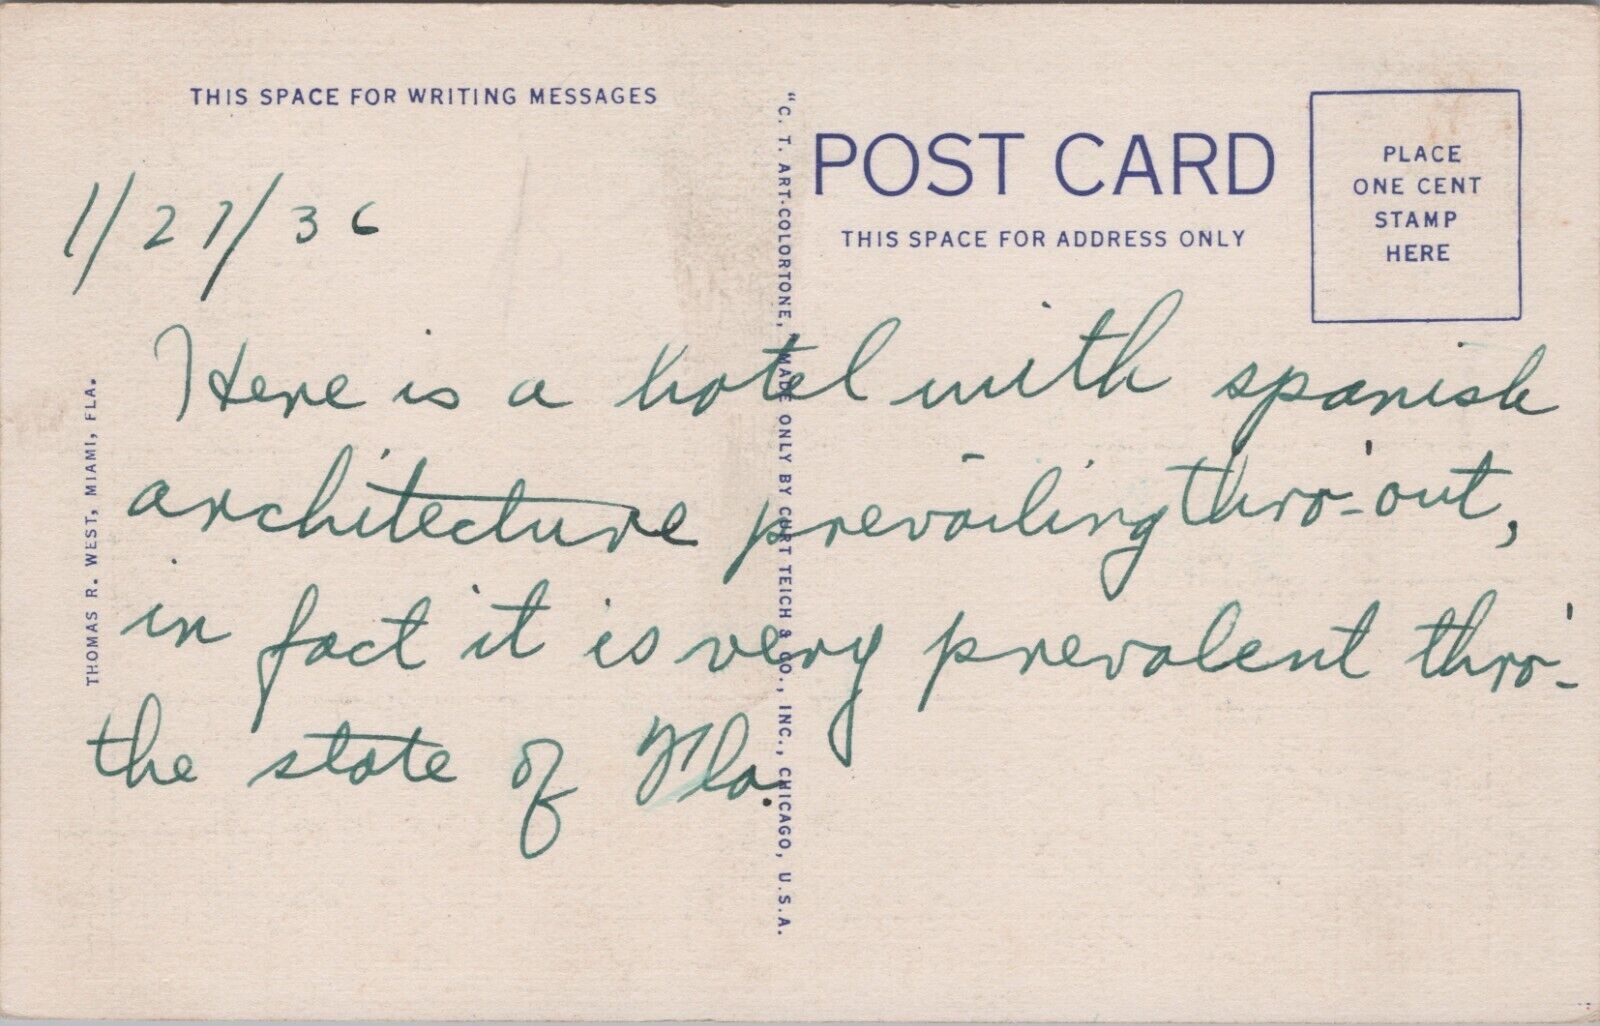 THIS SPACE FOR WRITING MESSAGES
POST CARD
THIS SPACE FOR ADDRESS ONLY
PLACE
ONE CENT
STAMP
HERE
1/27/36
Here is a hotel with spanish
architecture prevailing thro'-out,
in fact it is very prevalent thro'-
the state of Fla.
THOMAS R. WEST, MIAMI, FLA.
"C. T. ART-COLORTONE," MADE ONLY BY CURT TEICH & CO., INC., CHICAGO, U.S.A.